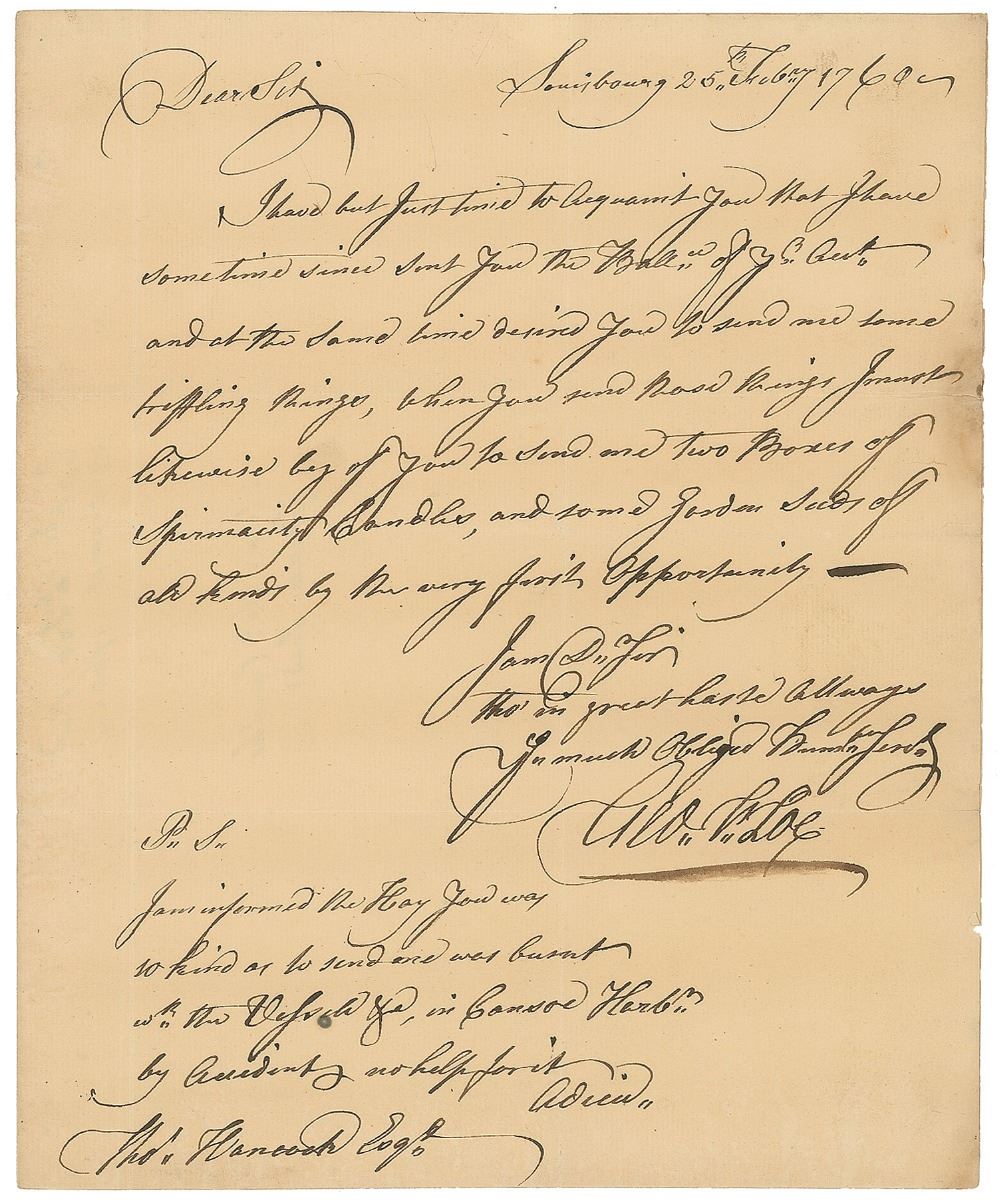 Dear Sir
Louisbourg 25th Febry 1760
I have but Just time to Acquaint You that I have
sometime since sent You the Ballce of yr Acct
and at the same time desired You to send me some
triffling things, when You send those things I must
likewise beg of You to send me two Boxes of
Spirmacity Candles, and some Garden Seeds of
all kinds by the very first Opportunity —
I am Dr Sir
tho' in great haste Allways
Yr much Obliged Humble Servt
P.. S..
I am informed the Hay You was
so kind as to send me was burnt
wth the Vessell &a, in Cansoe Harbr
by Accident no help for it
Adieu..
Thos Hancock Esqr